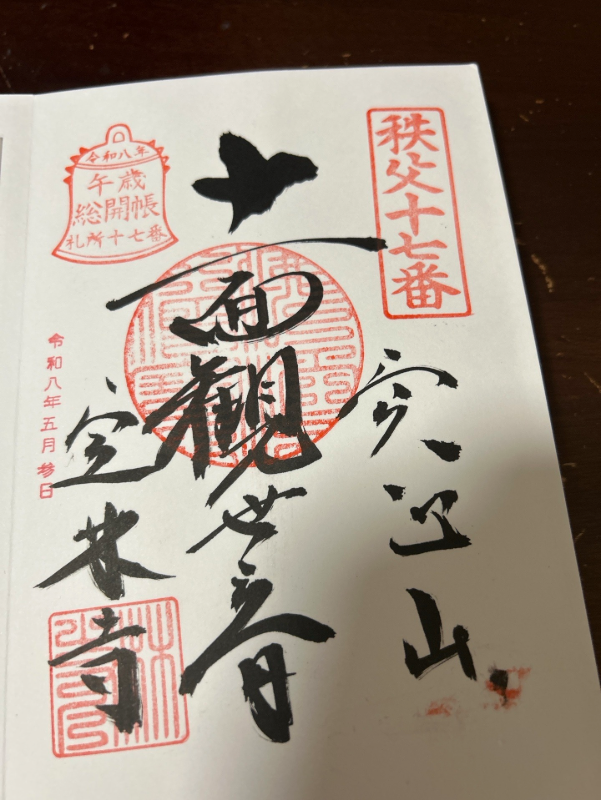 秩父十七番
実正山
十一面観世音
定林寺
令和八年
午歳
総開帳
札所十七番
令和八年五月参日